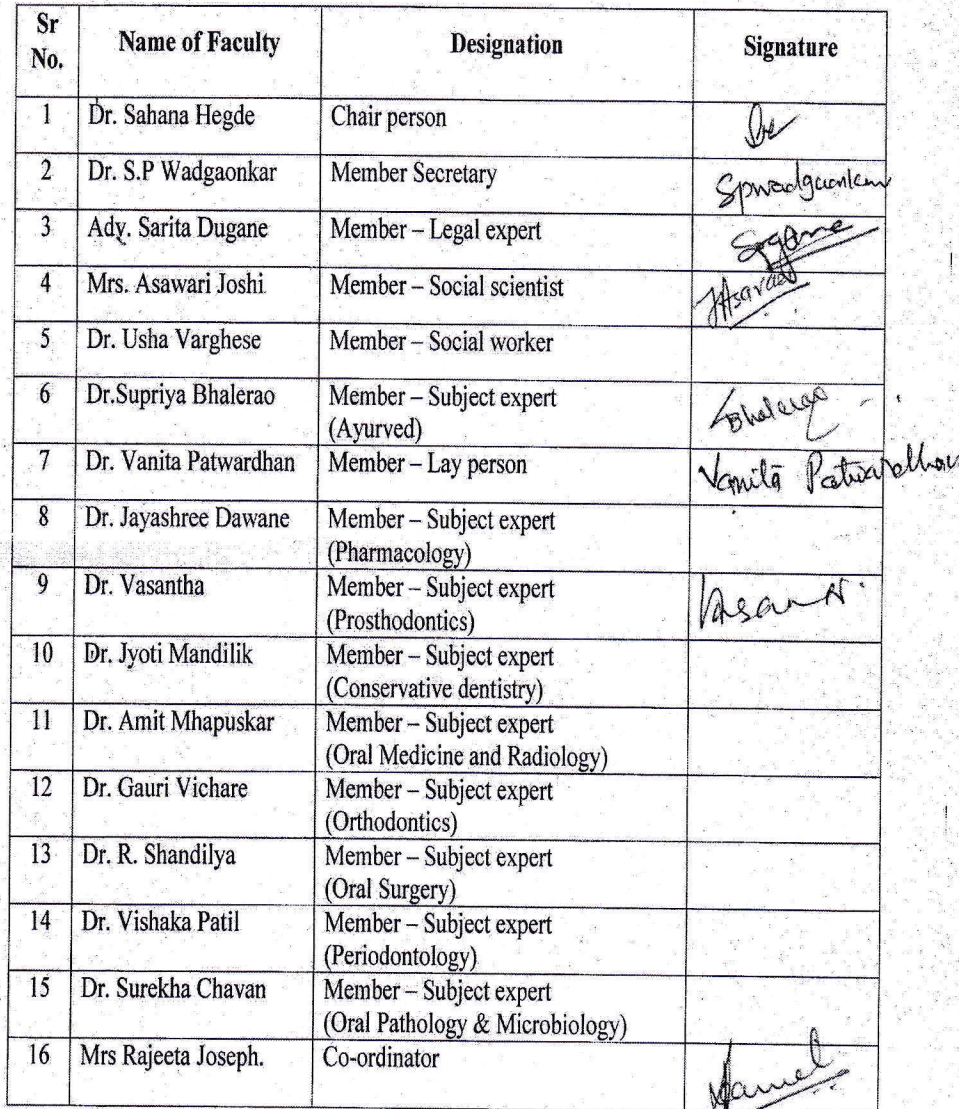 Sr No. Name of Faculty Designation Signature
1 Dr. Sahana Hegde Chair person
2 Dr. S.P Wadgaonkar Member Secretary Spwadgaonkar
3 Adv. Sarita Dugane Member – Legal expert
4 Mrs. Asawari Joshi Member – Social scientist
5 Dr. Usha Varghese Member – Social worker
6 Dr.Supriya Bhalerao Member – Subject expert Bhalerao
(Ayurved)
7 Dr. Vanita Patwardhan Member – Lay person Vanita Patwardhan
8 Dr. Jayashree Dawane Member – Subject expert
(Pharmacology)
9 Dr. Vasantha Member – Subject expert
(Prosthodontics)
10 Dr. Jyoti Mandilik Member – Subject expert
(Conservative dentistry)
11 Dr. Amit Mhapuskar Member – Subject expert
(Oral Medicine and Radiology)
12 Dr. Gauri Vichare Member – Subject expert
(Orthodontics)
13 Dr. R. Shandilya Member – Subject expert
(Oral Surgery)
14 Dr. Vishaka Patil Member – Subject expert
(Periodontology)
15 Dr. Surekha Chavan Member – Subject expert
(Oral Pathology & Microbiology)
16 Mrs Rajeeta Joseph. Co-ordinator